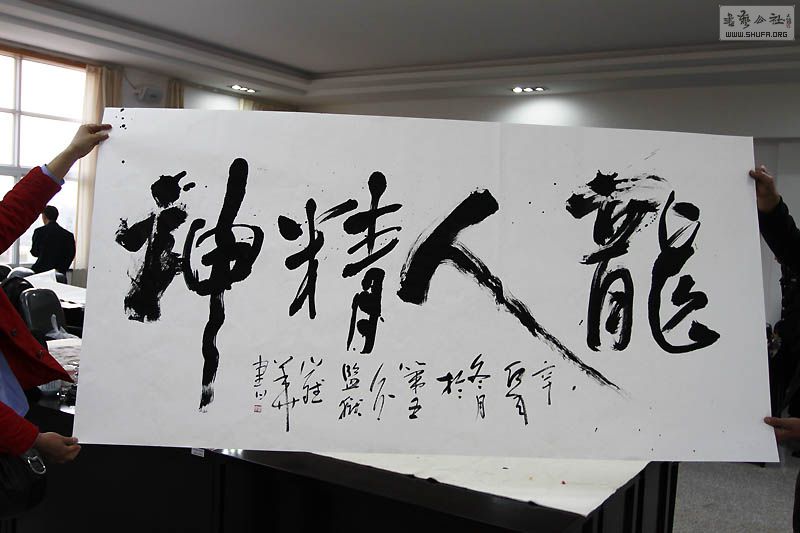 龍人精神
辛卯冬月於第五監獄
書藝公社
WWW.SHUFA.ORG